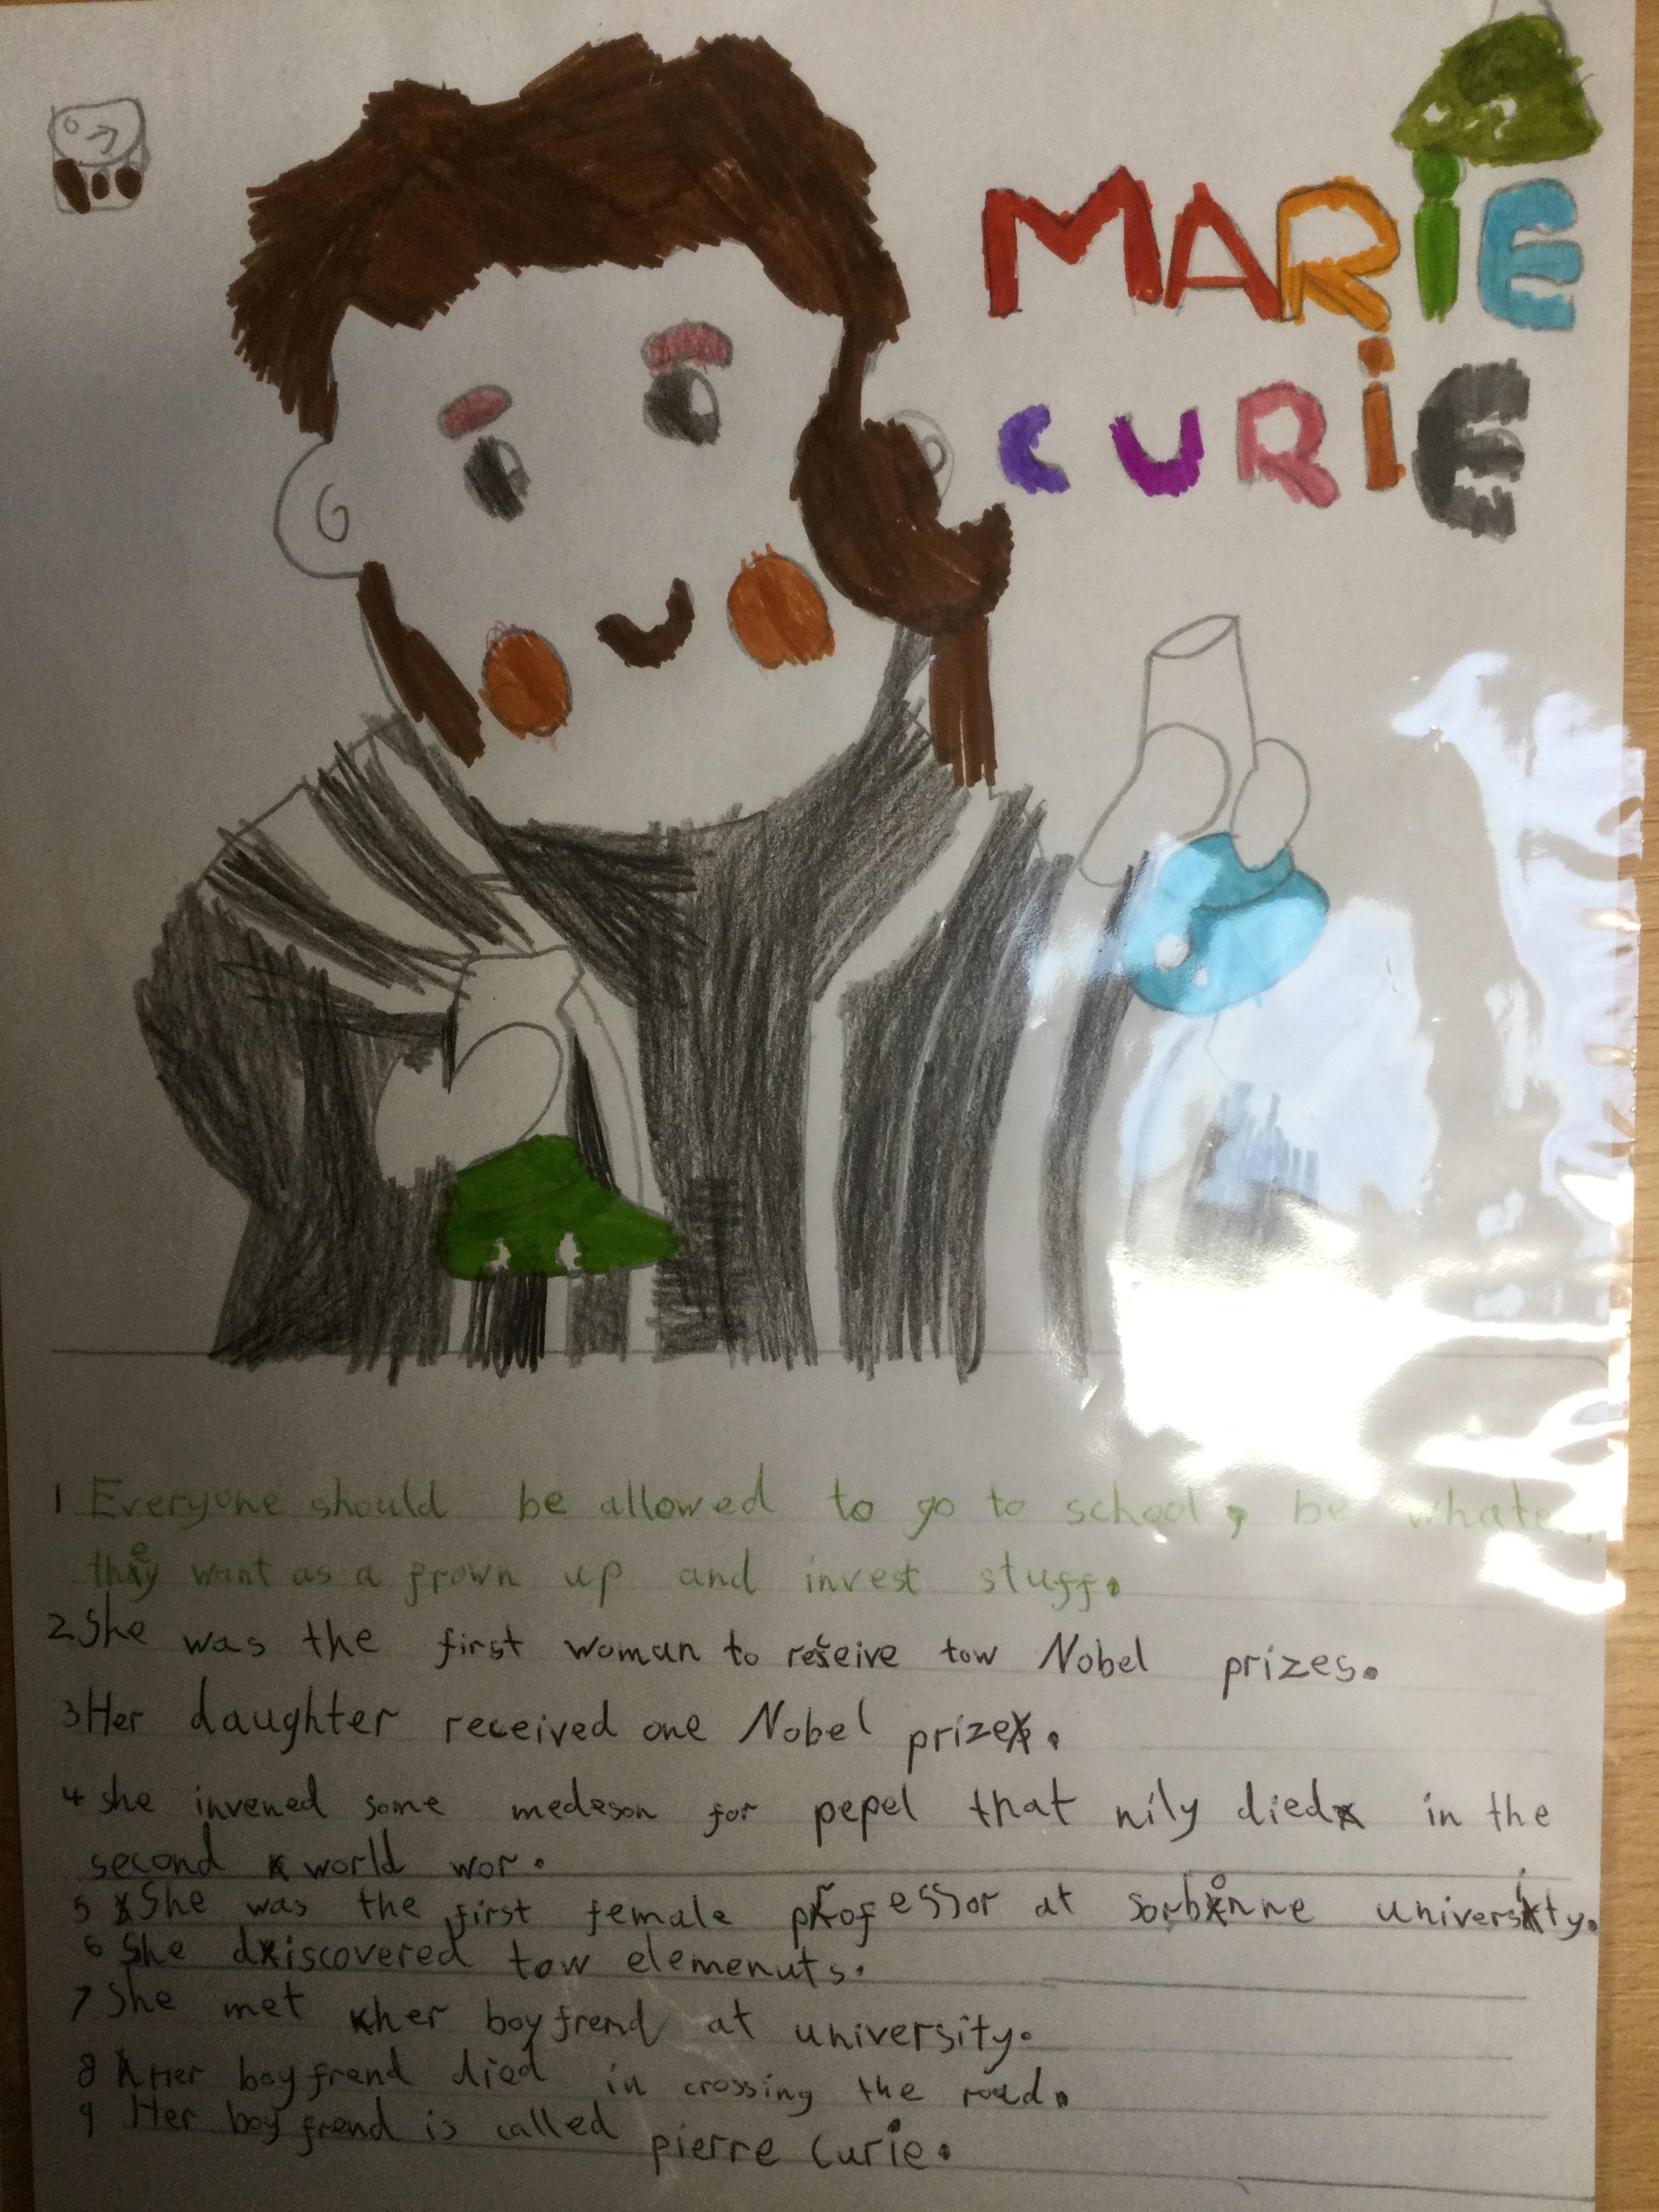 MARiE
CURiE
1 Everyone should be allowed to go to school, be whate
they want as a grown up and invest stuff.
2 She was the first woman to receive tow Nobel prizes.
3 Her daughter received one Nobel prize.
4 she invened some medeson for pepel that nily died in the
second world wor.
5 She was the first female professor at sorbonne university.
6 She discovered tow elemenuts.
7 She met her boyfrend at university.
8 Her boyfrend died in crossing the road.
9 Her boyfrend is called pierre Curie.